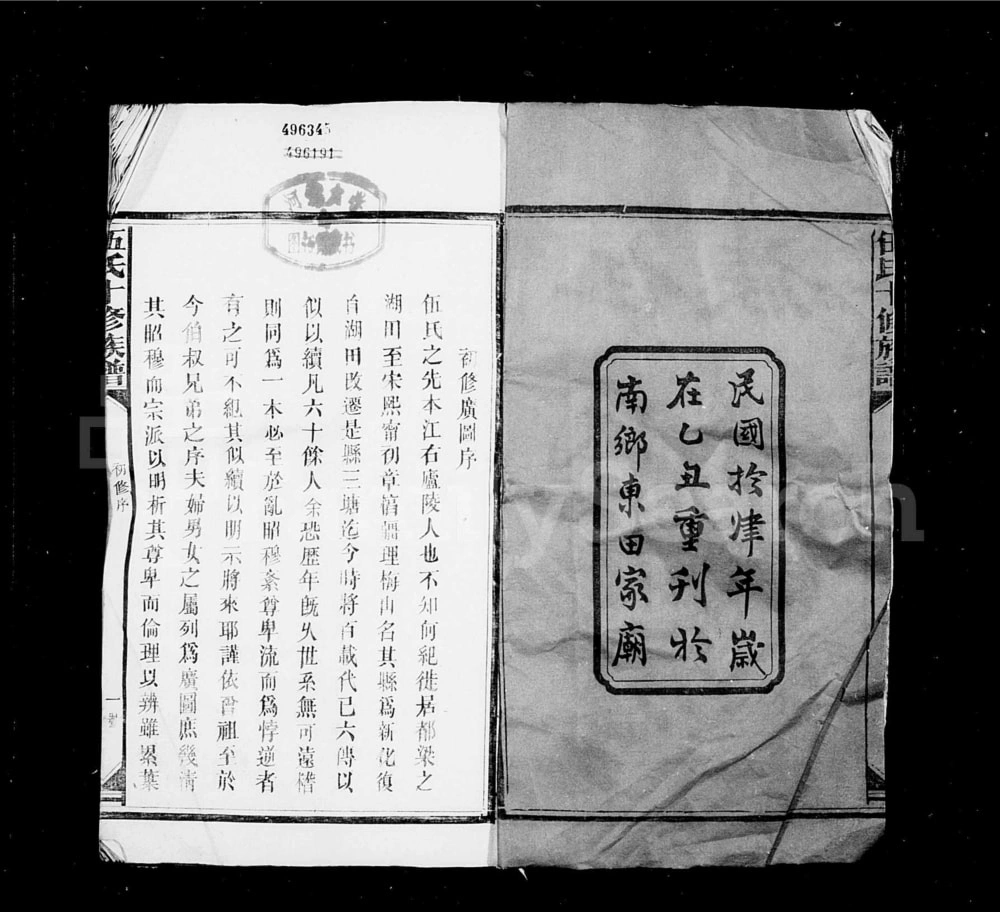 民國拾肂年歲
在乙丑重刊於
南鄉東田家廟
496345
496191
伍氏十修族譜
初修序
一
初修廣圖序
伍氏之先本江右廬陵人也不知何紀徙居都梁之
湖田至宋熙甯初章惇疆理梅山名其縣爲新化復
自湖田改遷是縣三塘迄今時將百載代已六傳以
似以續凡六十餘人余恐歷年旣久世系無可遠稽
則同爲一本必至於亂昭穆紊尊卑流而爲悖逆者
有之可不紀其似續以明示將來耶謹依曾祖至於
今伯叔兄弟之序夫婦男女之屬列爲廣圖庶幾淸
其昭穆而宗派以明析其尊卑而倫理以辨雖累葉
伍氏十修族譜